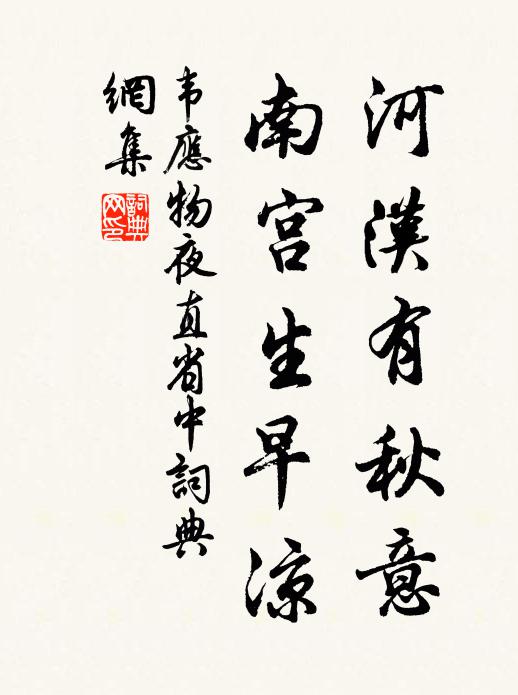 河漢有秋意
南宮生早涼
韦應物夜直省中詞典
網集
詞典
网印